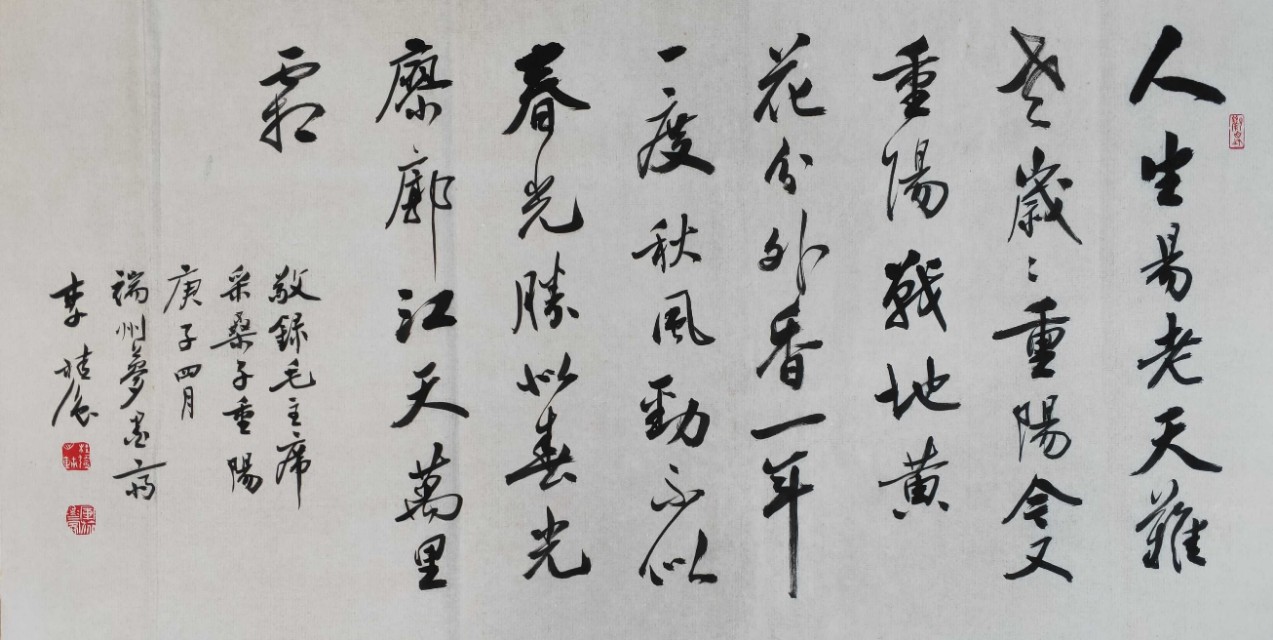 人生易老天難
老歲〻重陽今又
重陽戰地黄
花分外香一年
一度秋風勁不似
春光勝似春光
寥廓江天萬里
霜
敬録毛主席
采桑子重陽
庚子四月
端州夢齋
李